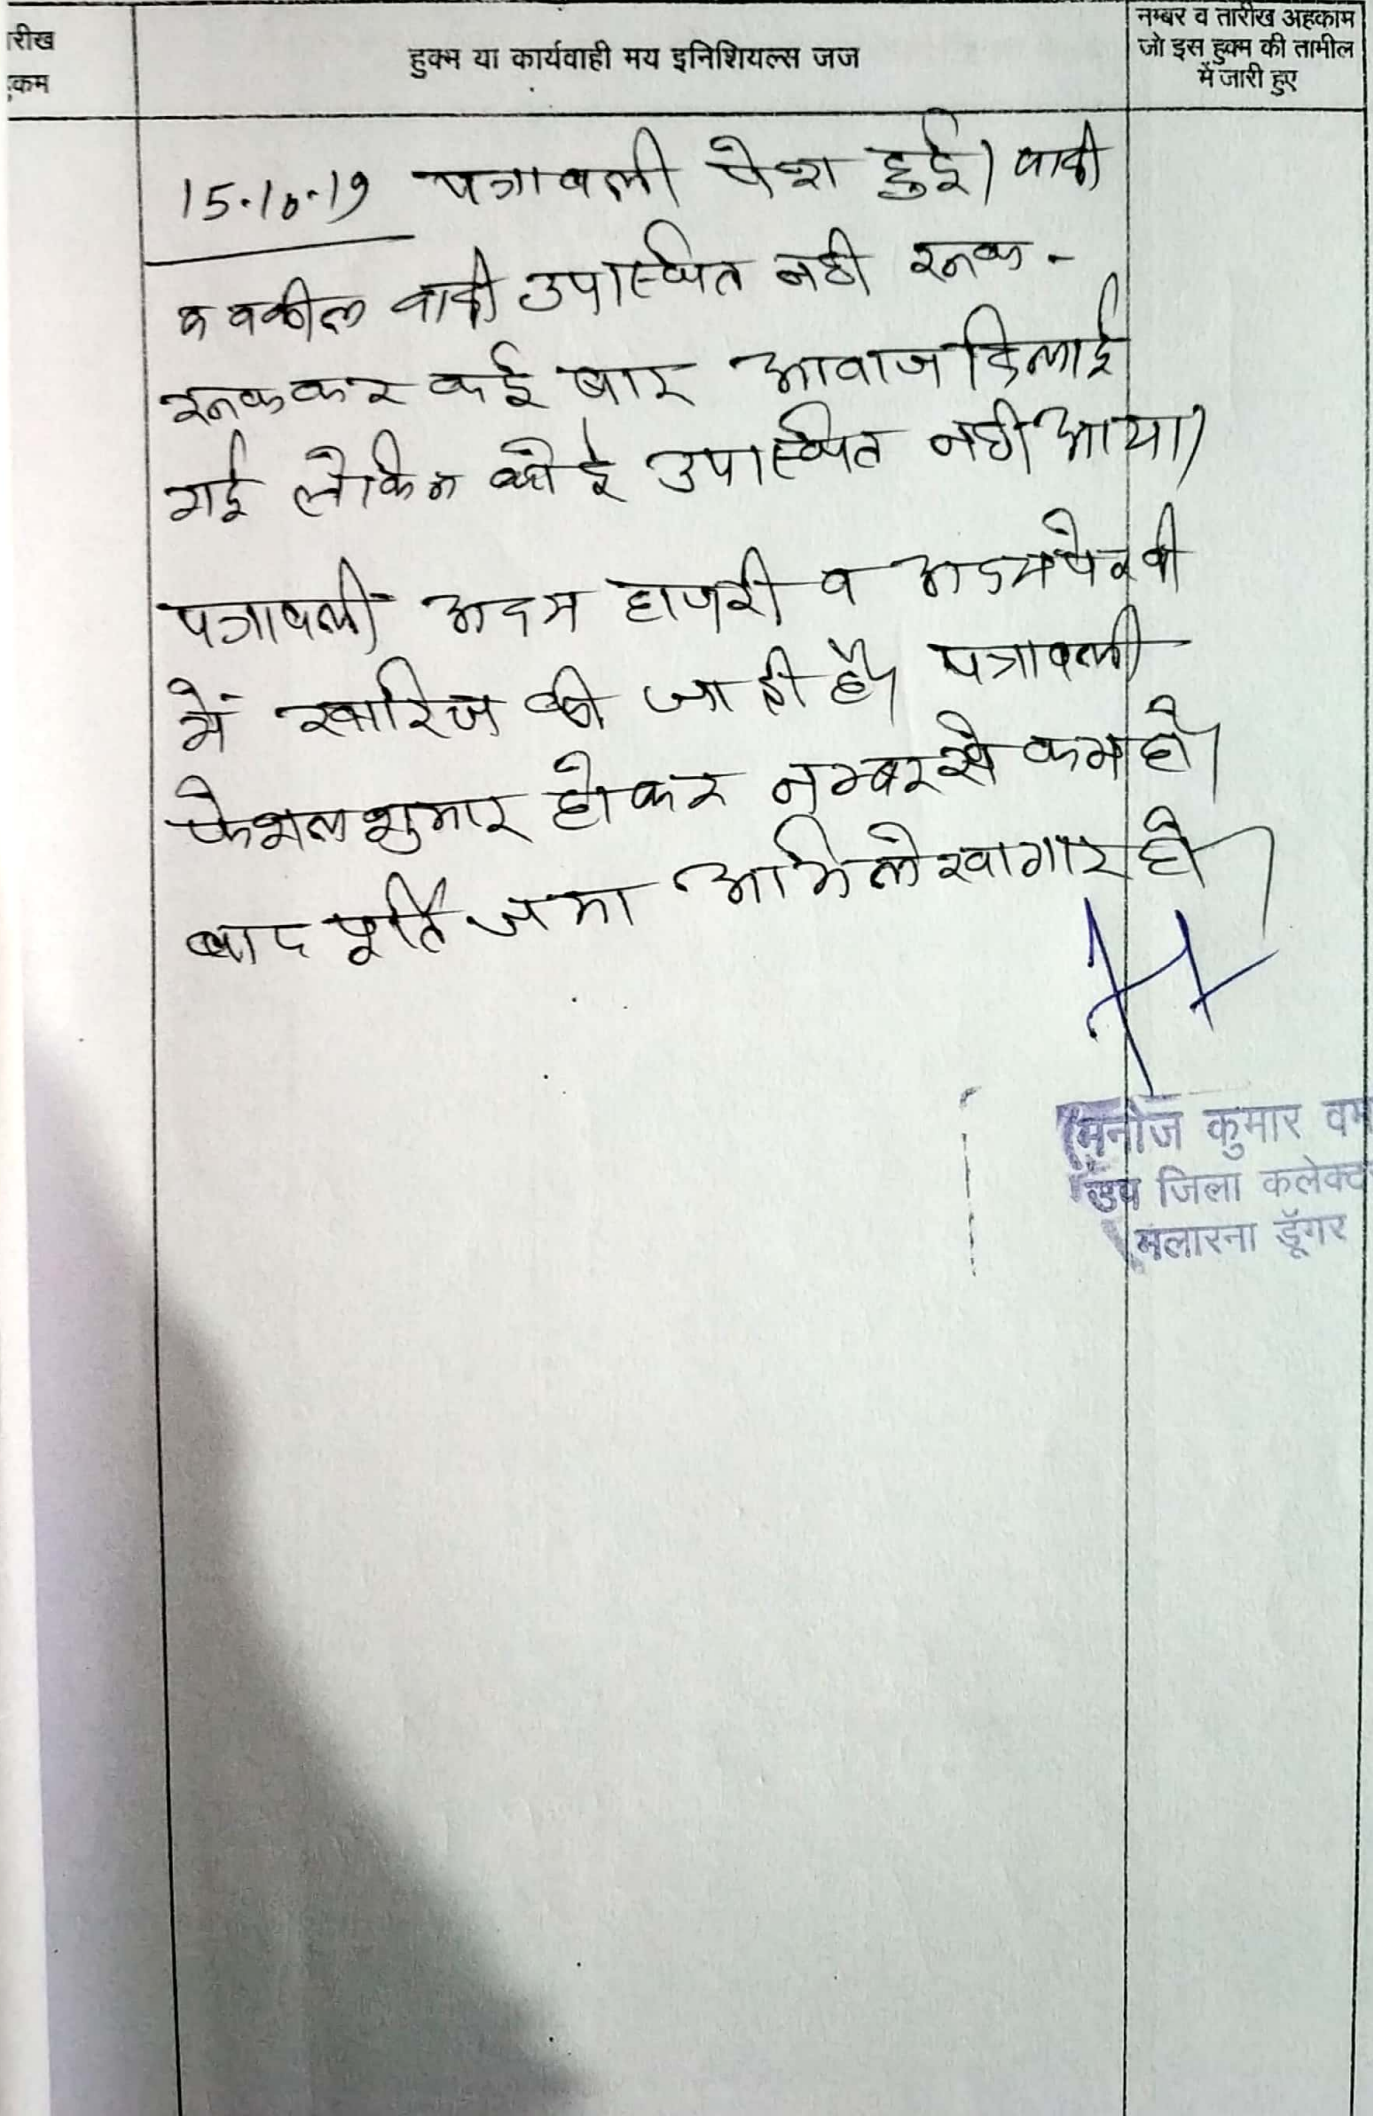 रीख
हुक्म या कार्यवाही मय इनिशियल्स जज
नम्बर व तारीख अहकाम
जो इस हुक्म की तामील
में जारी हुए
कम
15.10.19 पत्रावली पेश हुई। वादी
व वकील वादी उपस्थित नही रूक-
रूककर कई बार आवाज दिलाई
गई लेकिन कोई उपस्थित नही आया।
पत्रावली अदम हाजरी व अदमपैरवी
में खारिज की जाती है। पत्रावली
फैशलशुमार होकर नम्बर से कम हो।
बाद पूर्ति जमा अभिलेखागार हो।
मनोज कुमार वम
उप जिला कलेक्ट
मलारना डूँगर